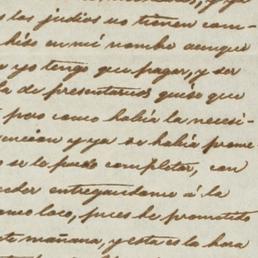 los judios no tienen com-
hiso en mi nombre aunque
yo tengo que pagar, y ser
la de presentarios quiso que
pero como habia la necesi-
y ya se habia prome
se le pudo completar, con
entregandome á la
loco, pues he prometido
mañana, y esta es la hora